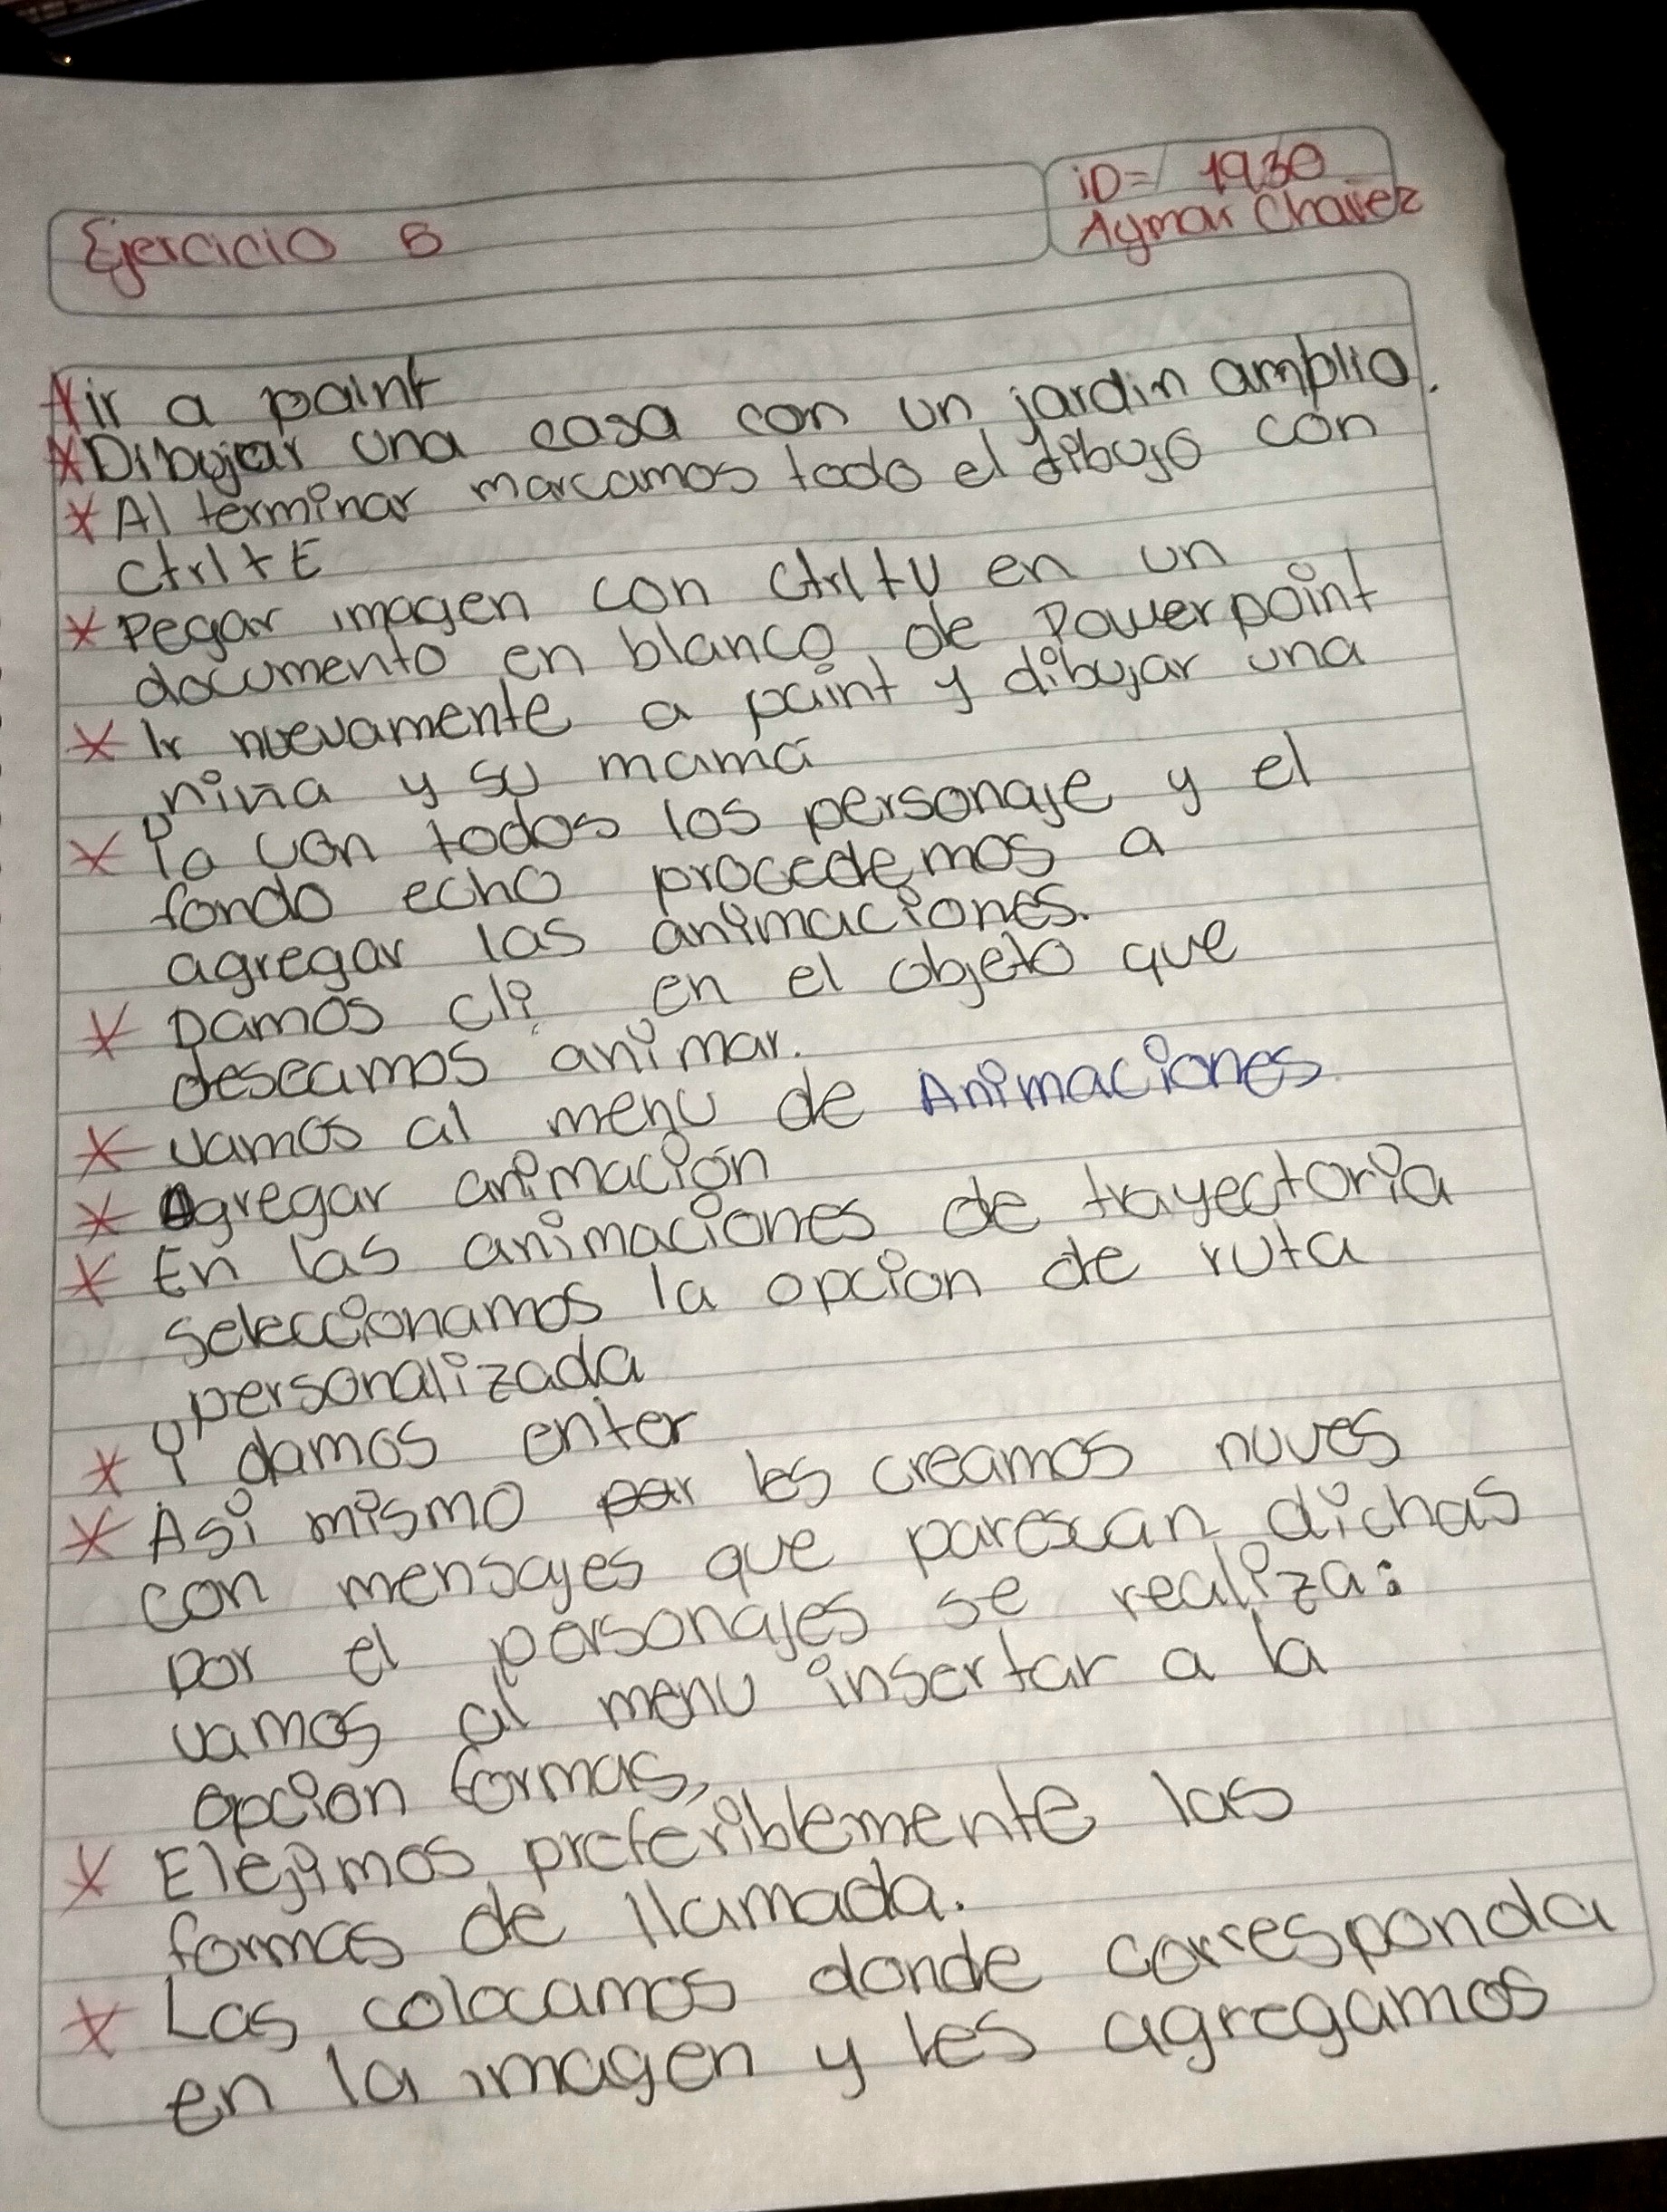 Ejercicio 5
iD= 1930
Aymar Chavez
* ir a paint
* Dibujar una casa con un jardin amplio.
* Al terminar marcamos todo el dibujo con
Ctrl+E
* Pegar imagen con Ctrl+V en un
documento en blanco de Powerpoint
* Ir nuevamente a paint y dibujar una
niña y su mamá
* Ya con todos los personaje y el
fondo echo procedemos a
agregar las animaciones.
* Damos cli en el objeto que
deseamos animar.
* vamos al menu de Animaciones
* Agregar animación
* En las animaciones de trayectoria
seleccionamos la opcion de ruta
personalizada
* Y damos enter
* Asi mismo par les creamos nuves
con mensajes que parescan dichas
por el personajes se realiza:
vamos al menu insertar a la
opcion formas,
* Elejimos preferiblemente las
formas de llamada.
* Las colocamos donde corresponda
en la imagen y les agregamos